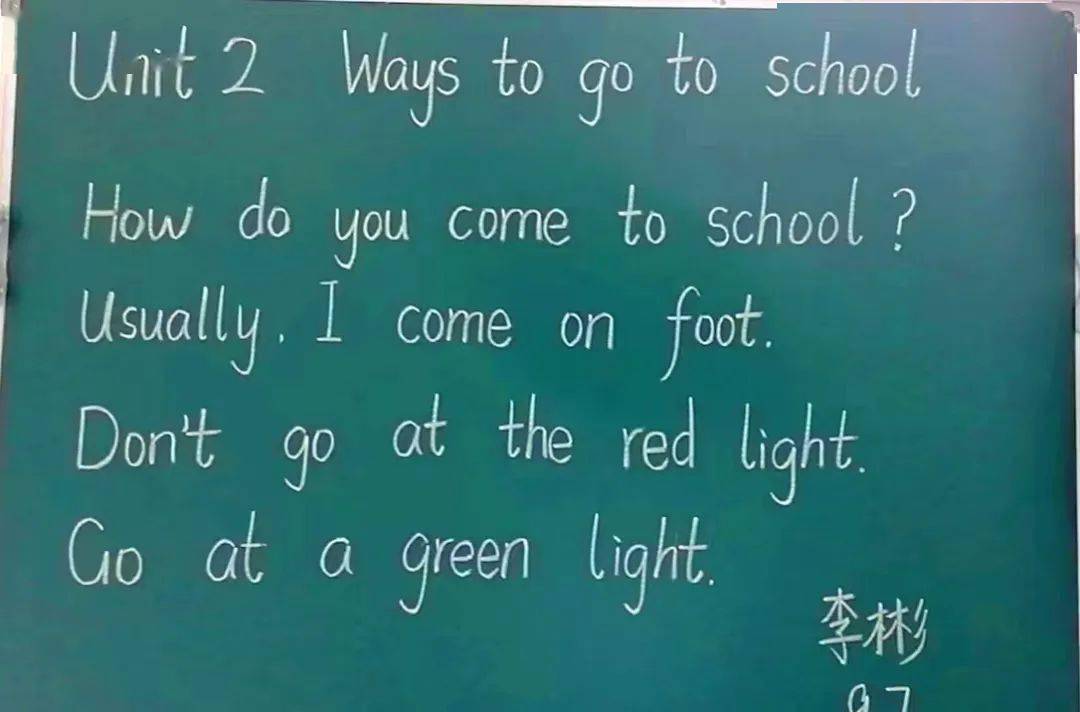 Unit 2 Ways to go to school
How do you come to school?
Usually, I come on foot.
Don't go at the red light.
Go at a green light.
李彬